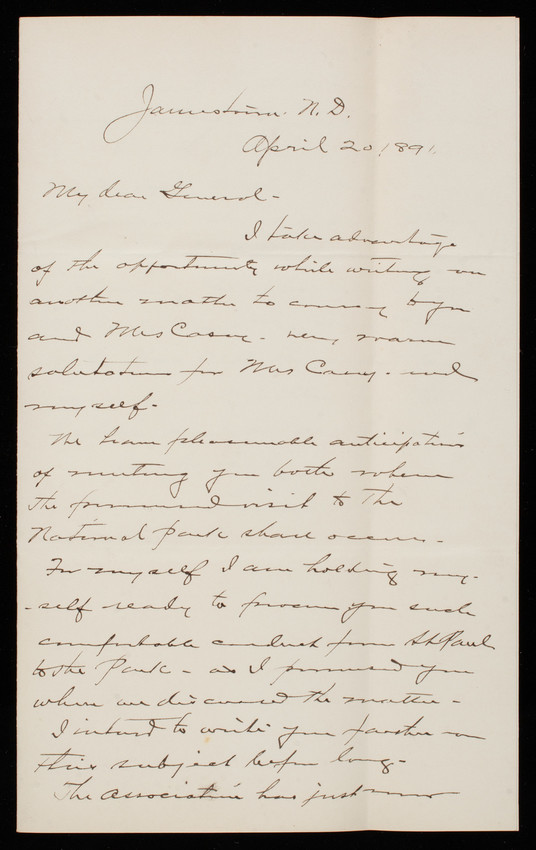 Jamestown. N.D.
April 20, 1891.
My dear General -
I take advantage
of the opportunity while writing on
another matter to convey to you
and Mrs Casey - very warm
salutations for Mrs Casey - and
myself -
We have pleasurable anticipations
of meeting you both when
the promised visit to the
National Park shall occur -
For myself I am holding my-
-self ready to procure you such
comfortable conduct from St Paul
to the Park - as I promised you
when we discussed the matter -
I intend to write you further on
this subject before long -
The Association has just now